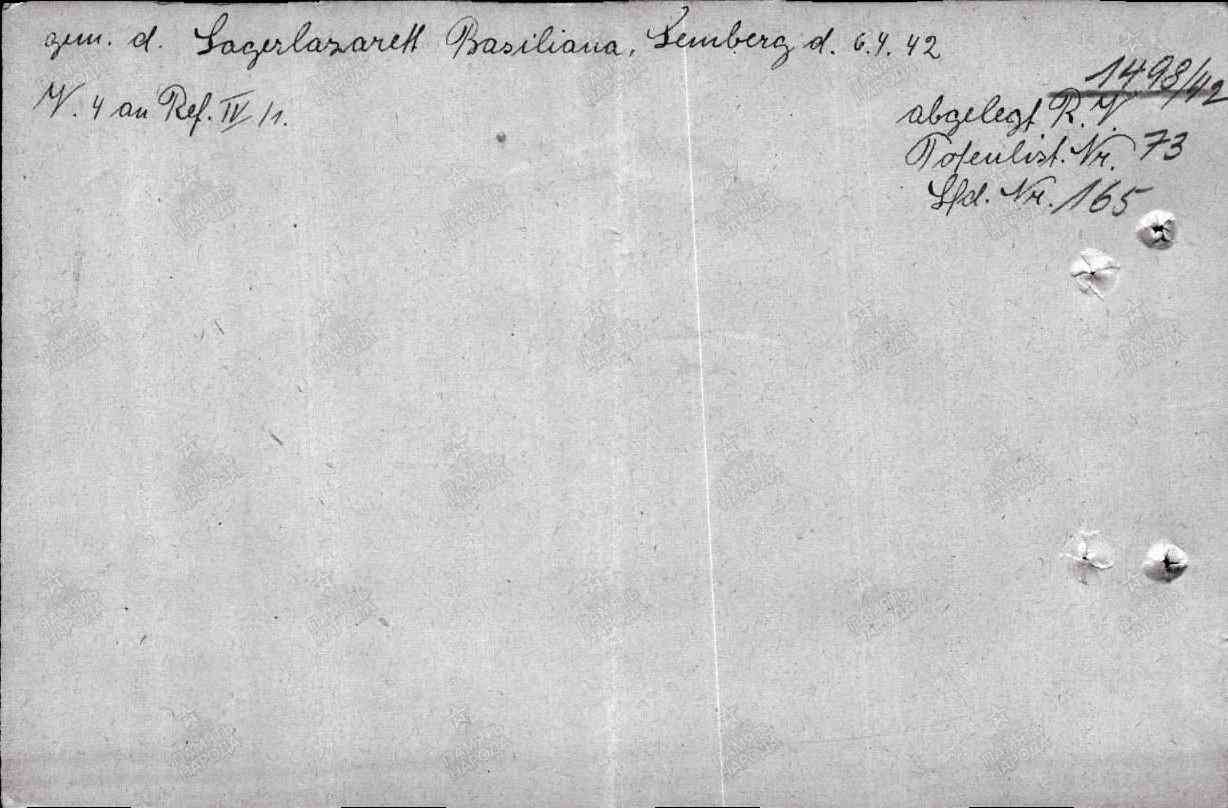 gem. d. Lagerlazarett Basiliana, Lemberg d. 6.4.42
V. 4 an Ref. IV /1.
1498/42
abgelegt R. V.
Totenlist. Nr. 73
Lfd. Nr. 165